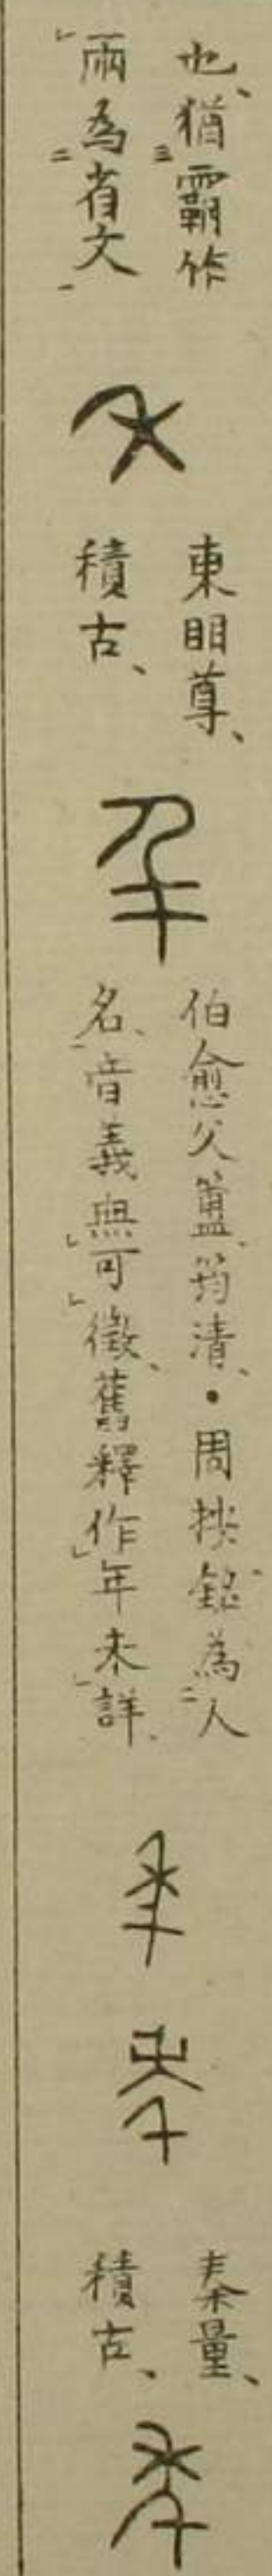 也、猶霸作
雨為省文
東眀尊、
積古、
伯愈父簠、筠清、·周揆銘為人
名、音義無可徵、舊釋作年未詳、
秦量、
積古、